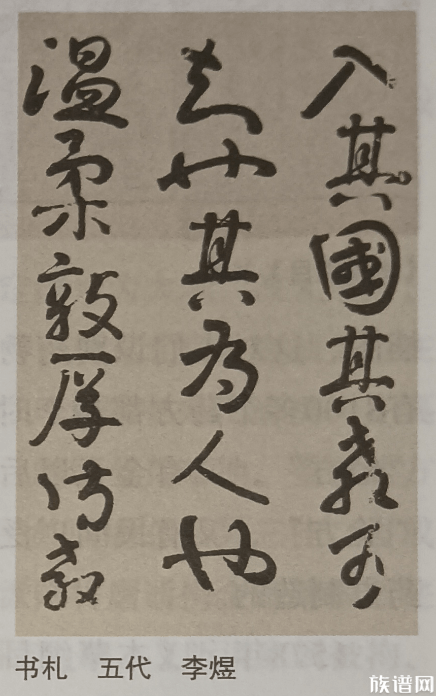 入其國其教可
知也其為人也
温柔敦厚詩教
书札 五代 李煜
族谱网